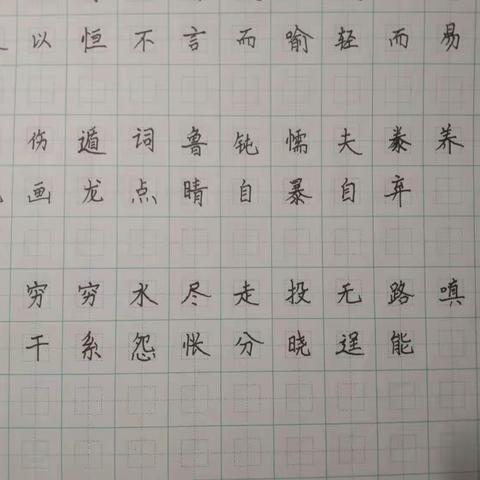 以恒不言而喻轻而易
伤遁词鲁钝懦夫豢养
画龙点睛自暴自弃
穷穷水尽走投无路嗔
干系怨怅分晓逞能